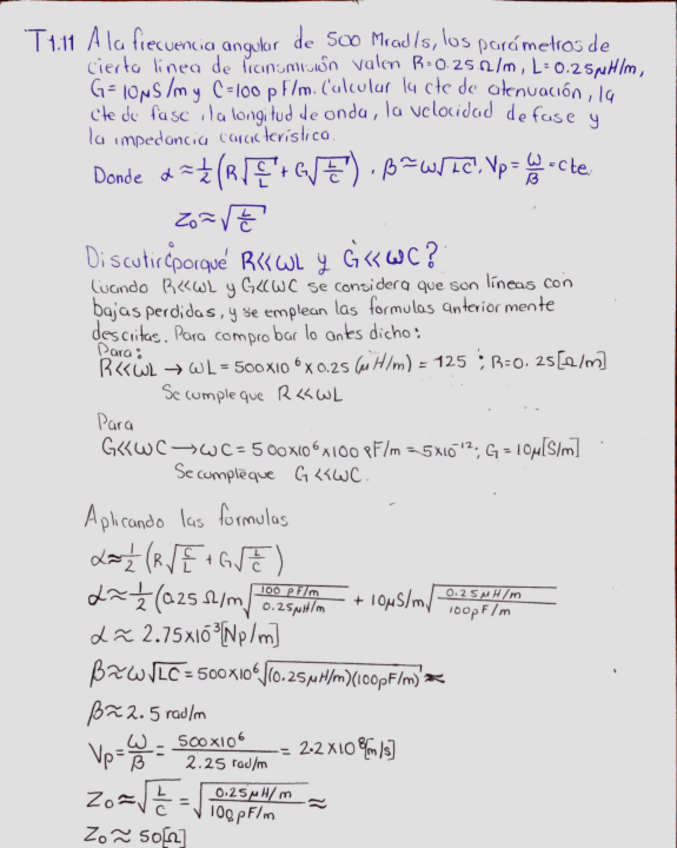 T1.11 A la frecuencia angular de 500 Mrad/s, los parámetros de
cierta línea de transmisión valen R=0.25Ω/m, L=0.25μH/m,
G=10μS/m y C=100 pF/m. Calcular la cte de atenuación, la
cte de fase, la longitud de onda, la velocidad de fase y
la impedancia característico.
Donde α≈1/2(R√(C/L) + G√(L/C)), β≈ω√LC, Vp=ω/β=cte
Zo≈√(L/C)
Discutir ¿porqué R<<ωL y G<<ωC?
Cuando R<<ωL y G<<ωC se considera que son líneas con
bajas perdidas, y se emplean las formulas anteriormente
descritas. Para comprobar lo antes dicho:
Para:
R<<ωL → ωL = 500x10⁶ x 0.25 (μH/m) = 125 ; R=0.25[Ω/m]
Se cumple que R<<ωL
Para
G<<ωC → ωC = 500x10⁶x100 pF/m = 5x10⁻¹²; G = 10μ[S/m]
Se cumple que G<<ωC.
Aplicando las formulas
α≈1/2(R√(C/L) + G√(L/C))
α≈1/2(0.25 Ω/m√(100 pF/m / 0.25μH/m) + 10μS/m√(0.25μH/m / 100pF/m)
α≈ 2.75x10⁻³[Np/m]
β≈ω√LC = 500x10⁶√(0.25μH/m)(100pF/m) ≈
β≈2.5 rad/m
Vp=ω/β = 500x10⁶ / 2.25 rad/m = 2.2x10⁸[m/s]
Zo≈√(L/C) = √(0.25μH/m / 100pF/m) ≈
Zo≈ 50[Ω]